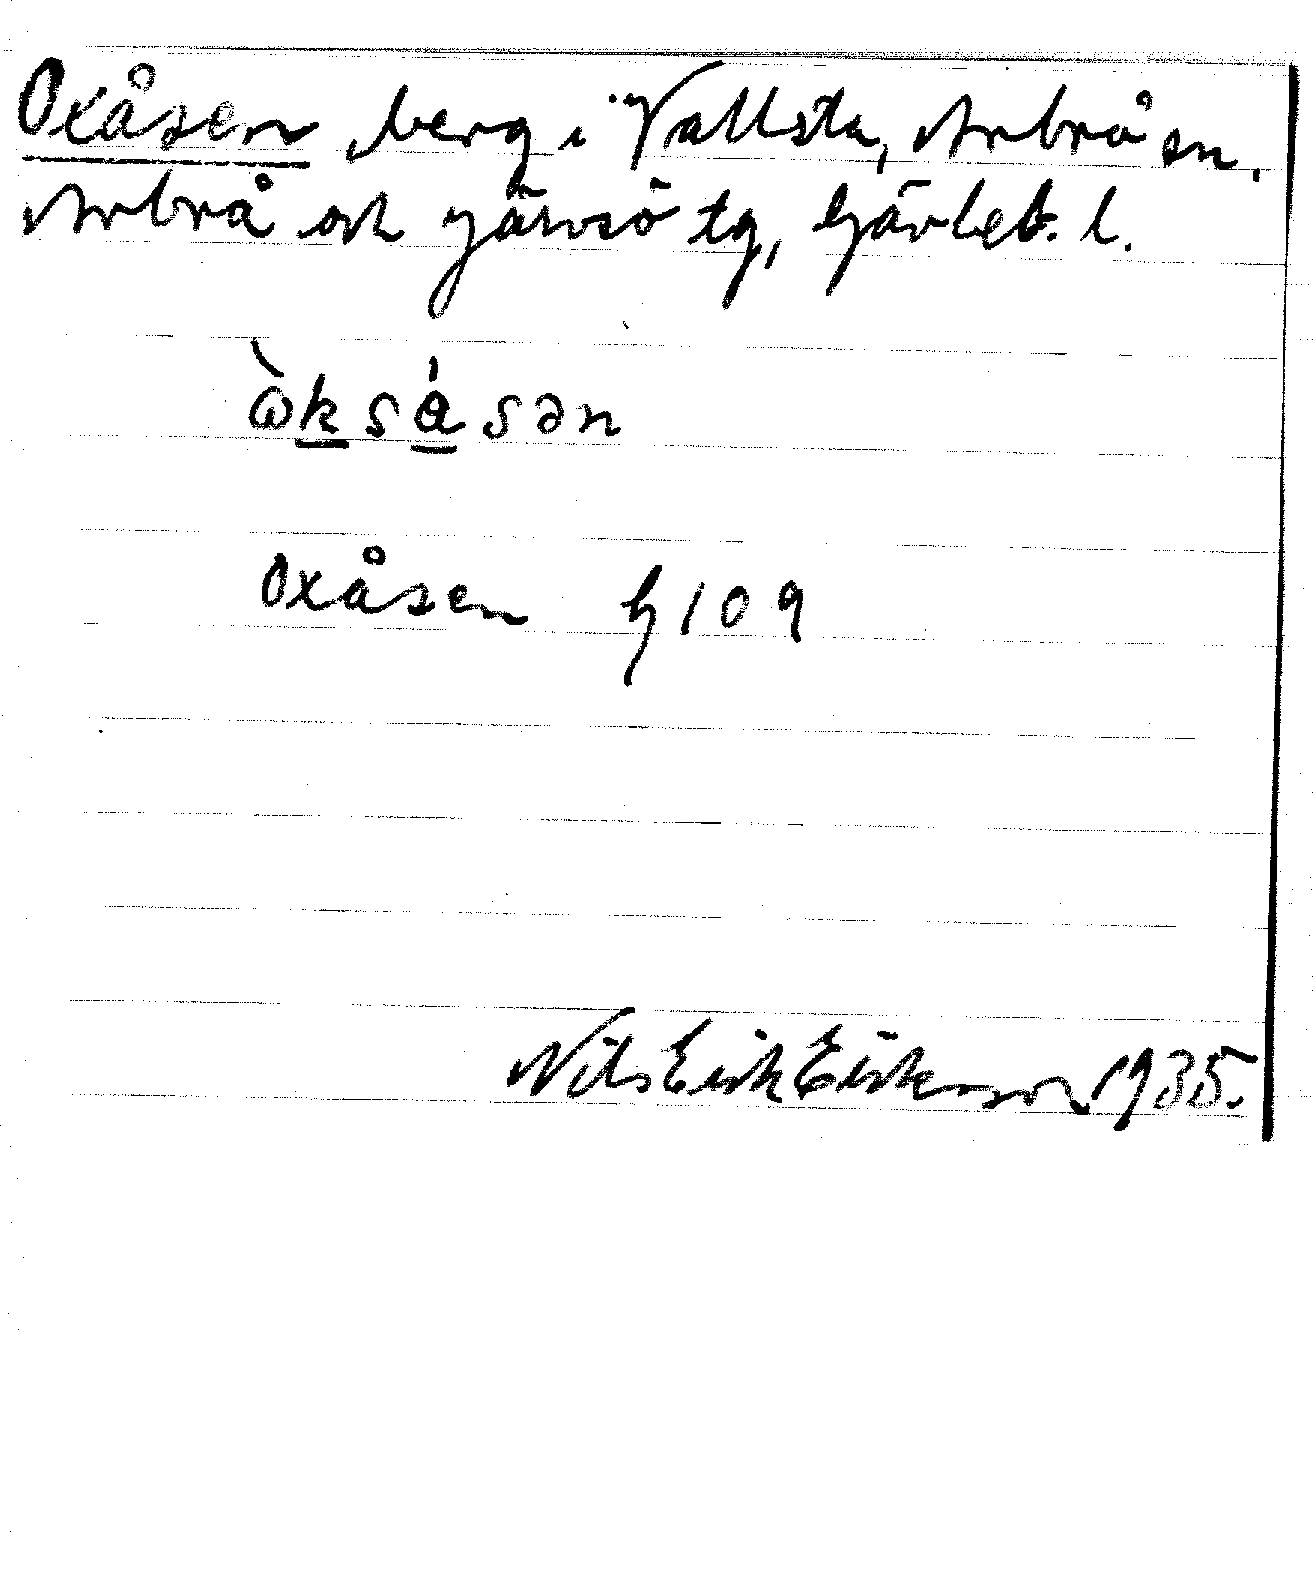 Oxåsen berg i Vallsta, Arbrå sn,
Arbrå och Järvsö tg, Gävleb. l.
ὼksa̍sən
Oxåsen G 109
Nils Erik Eriksson 1935.